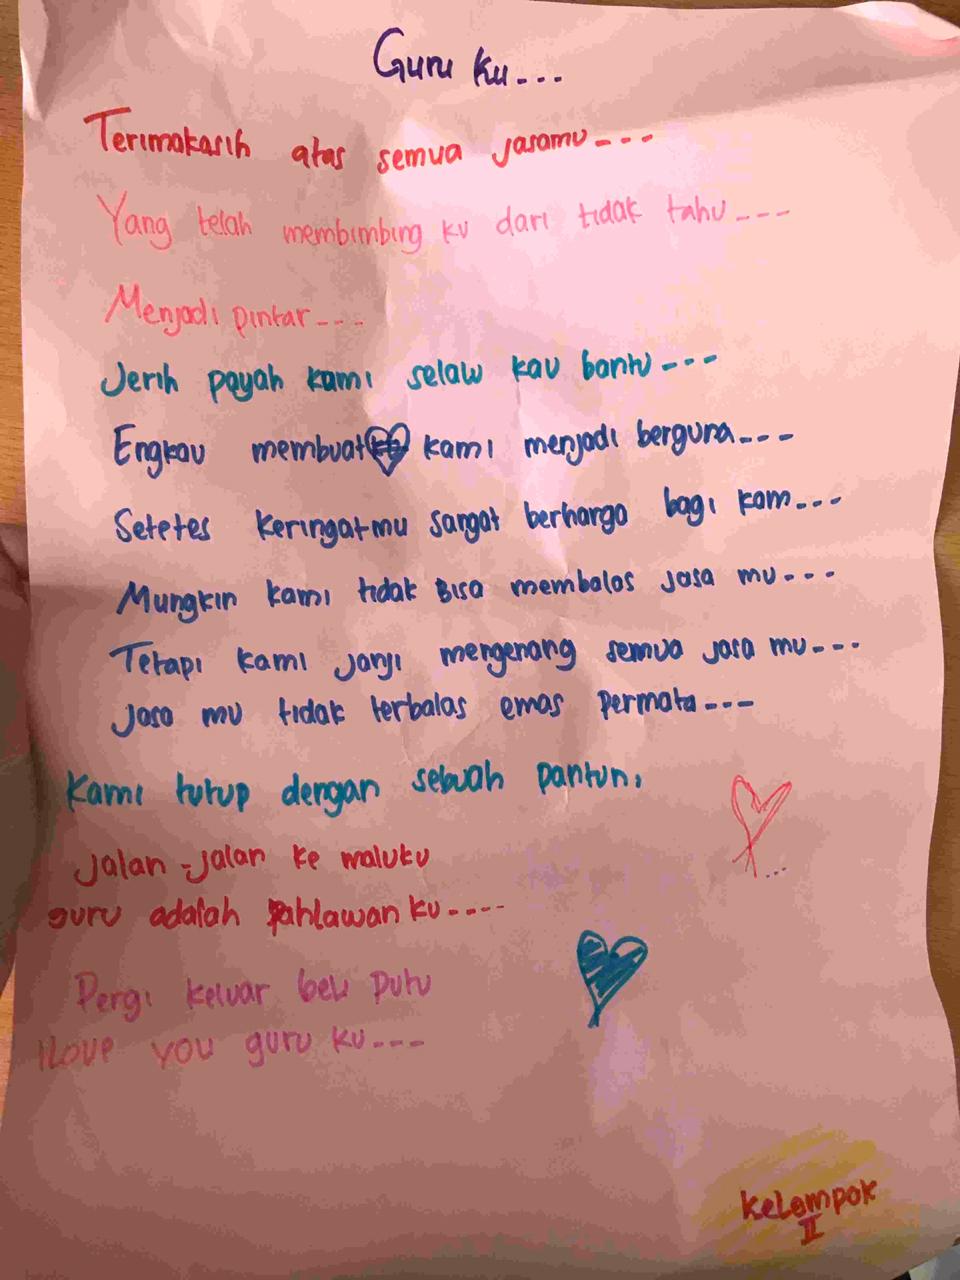 Guru ku...
Terimakasih atas semua jasamu---
Yang telah membimbing ku dari tidak tahu---
Menjadi pintar---
Jerih payah kami selaw kau bantu---
Engkau membuat kami menjadi berguna---
Setetes keringatmu sangat berharga bagi kam...
Mungkin kami tidak bisa membalas jasa mu---
Tetapi kami janji mengenang semua jasa mu---
Jasa mu tidak terbalas emas permata---
Kami tutup dengan sebuah pantun,
Jalan-jalan ke maluku
guru adalah pahlawan ku----
Pergi keluar beli Putu
I Love you guru ku---
Kelompok
II